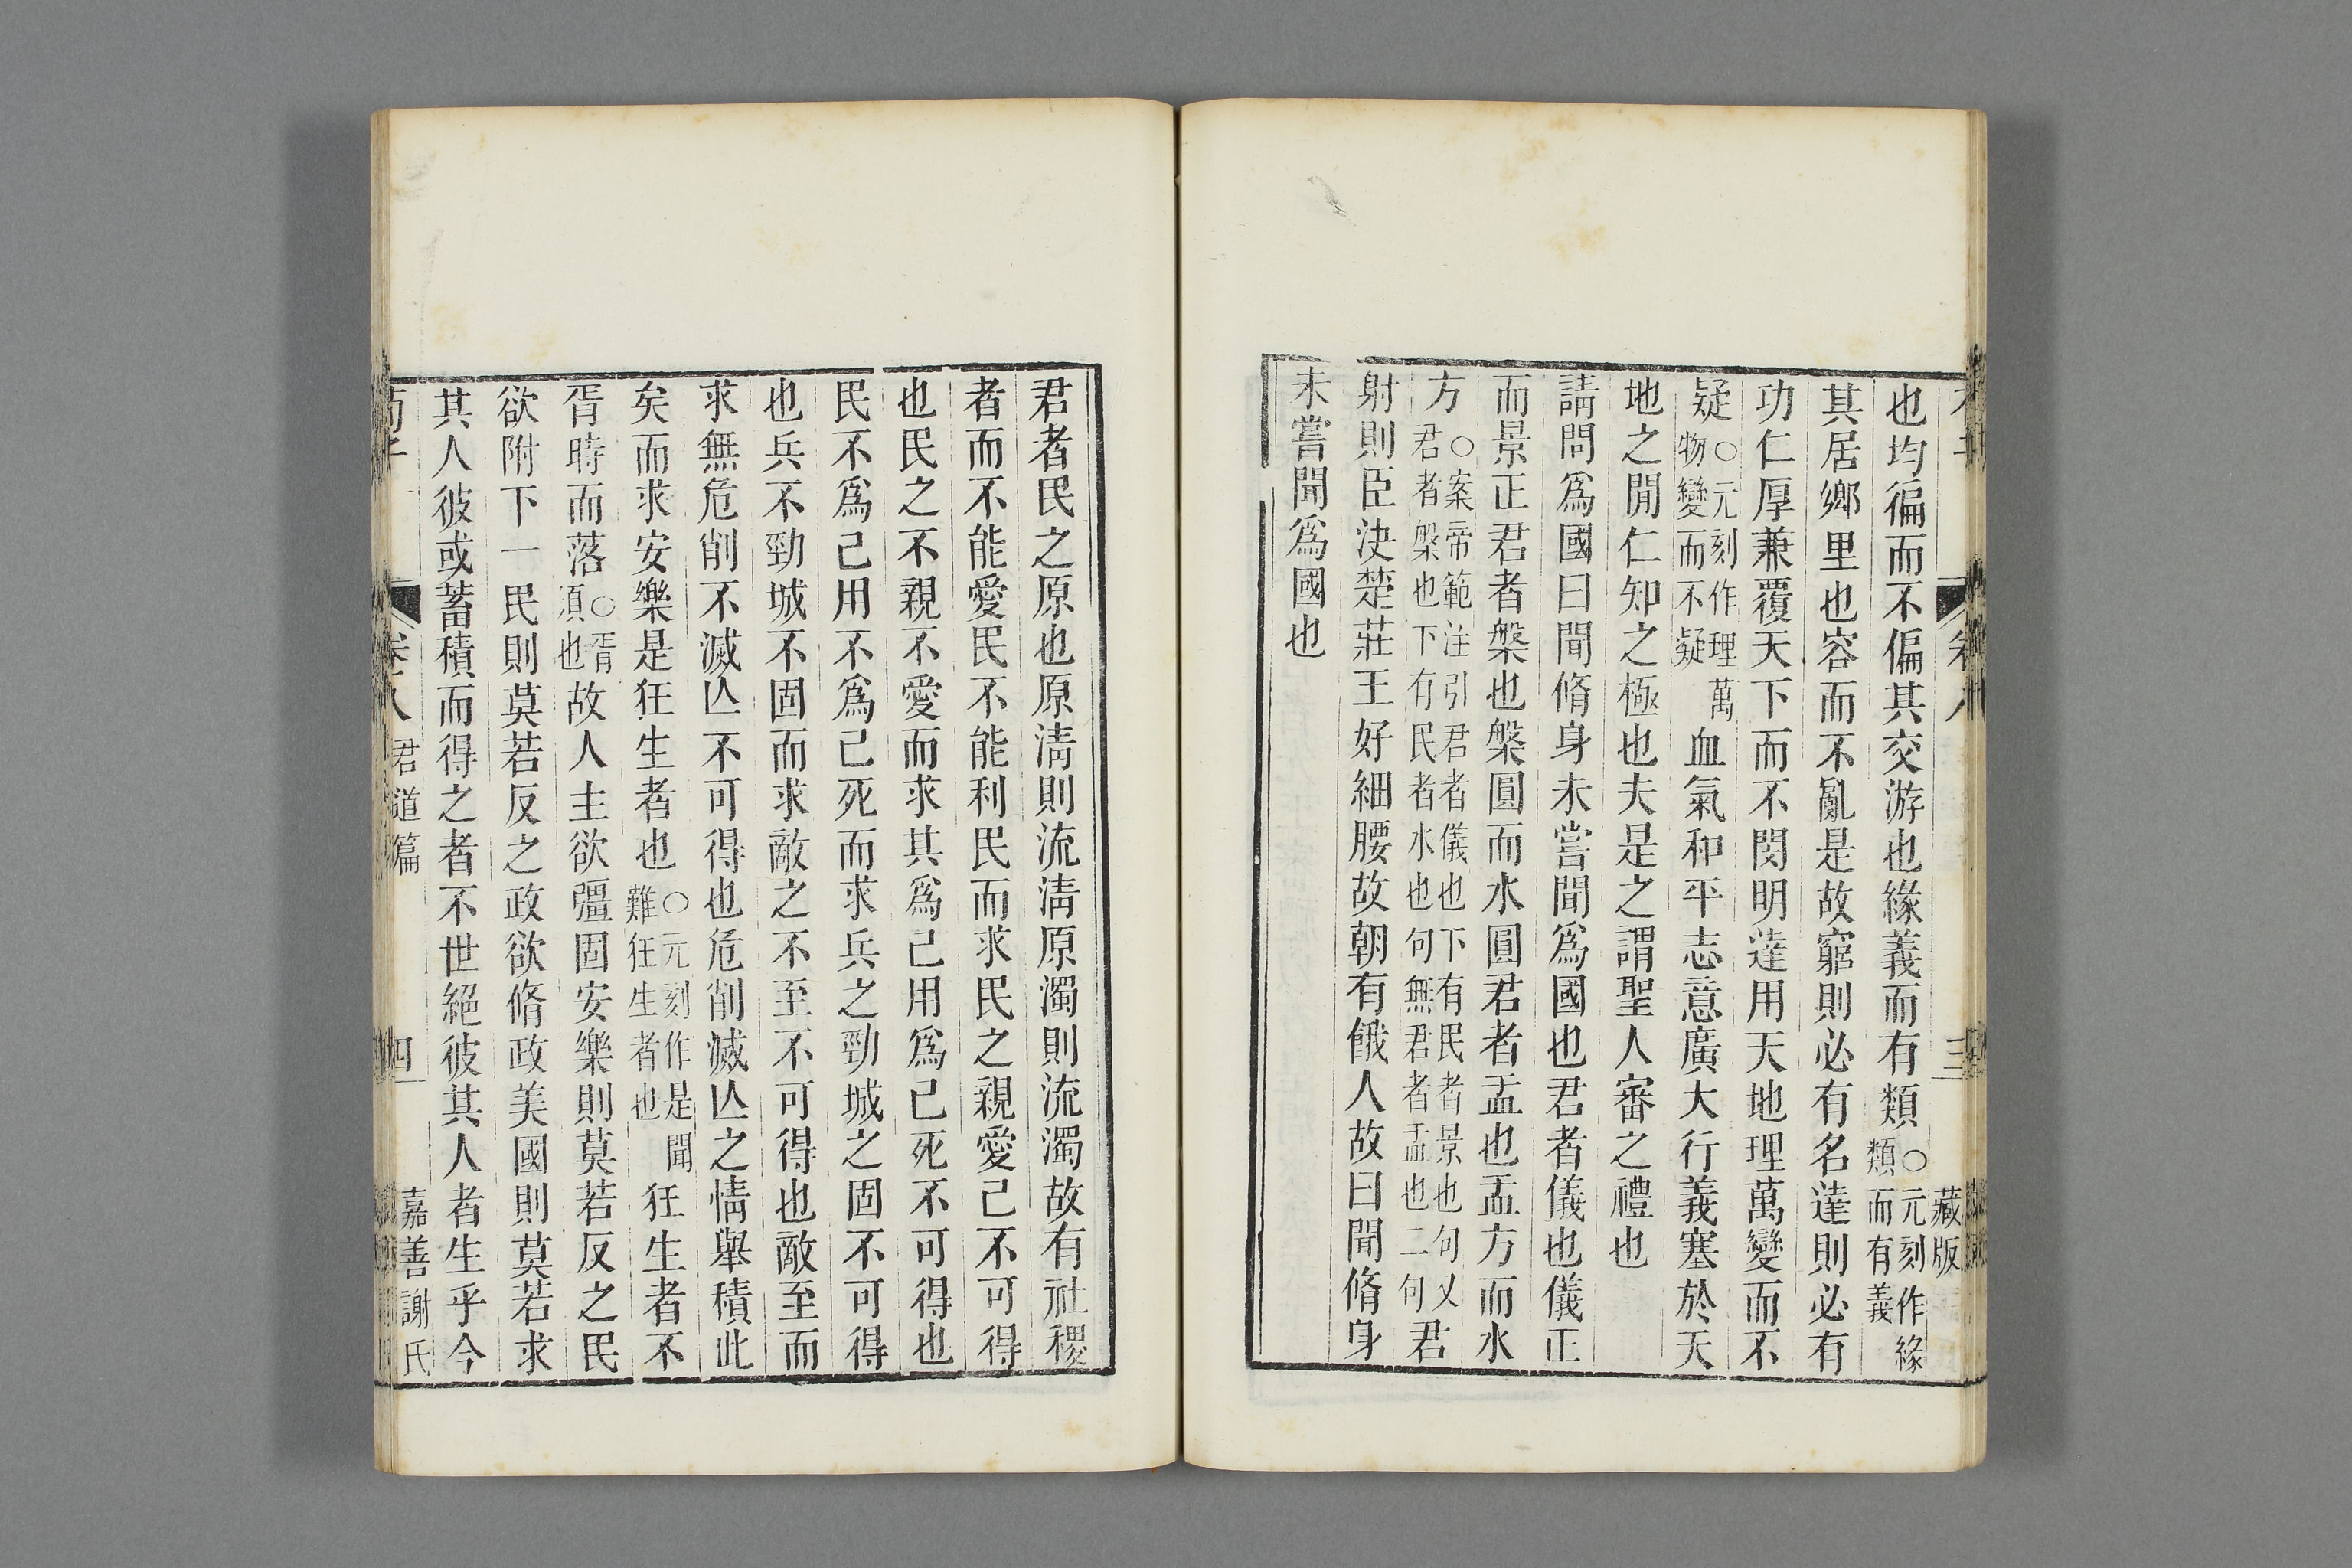 藏版
三
也均徧而不偏其交游也緣義而有類○元刻作緣類而有義
其居鄉里也容而不亂是故窮則必有名達則必有
功仁厚兼覆天下而不閔明達用天地理萬變而不
疑○元刻作理萬物變而不疑血氣和平志意廣大行義塞於天
地之閒仁知之極也夫是之謂聖人審之禮也
請問爲國曰聞脩身未嘗聞爲國也君者儀也儀正
而景正君者槃也槃圓而水圓君者盂也盂方而水
方○案帝範注引君者儀也下有民者景也句又君者槃也下有民者水也句無君者盂也二句君
射則臣決楚莊王好細腰故朝有餓人故曰聞脩身
未嘗聞爲國也
君者民之原也原淸則流淸原濁則流濁故有社稷
者而不能愛民不能利民而求民之親愛己不可得
也民之不親不愛而求其爲己用爲己死不可得也
民不爲己用不爲己死而求兵之勁城之固不可得
也兵不勁城不固而求敵之不至不可得也敵至而
求無危削不滅亾不可得也危削滅亾之情舉積此
矣而求安樂是狂生者也○元刻作是聞難狂生者也狂生者不
胥時而落○胥須也故人主欲彊固安樂則莫若反之民
欲附下一民則莫若反之政欲脩政美國則莫若求
其人彼或蓄積而得之者不世絕彼其人者生乎今
荀子 卷八 君道篇 四 嘉善謝氏